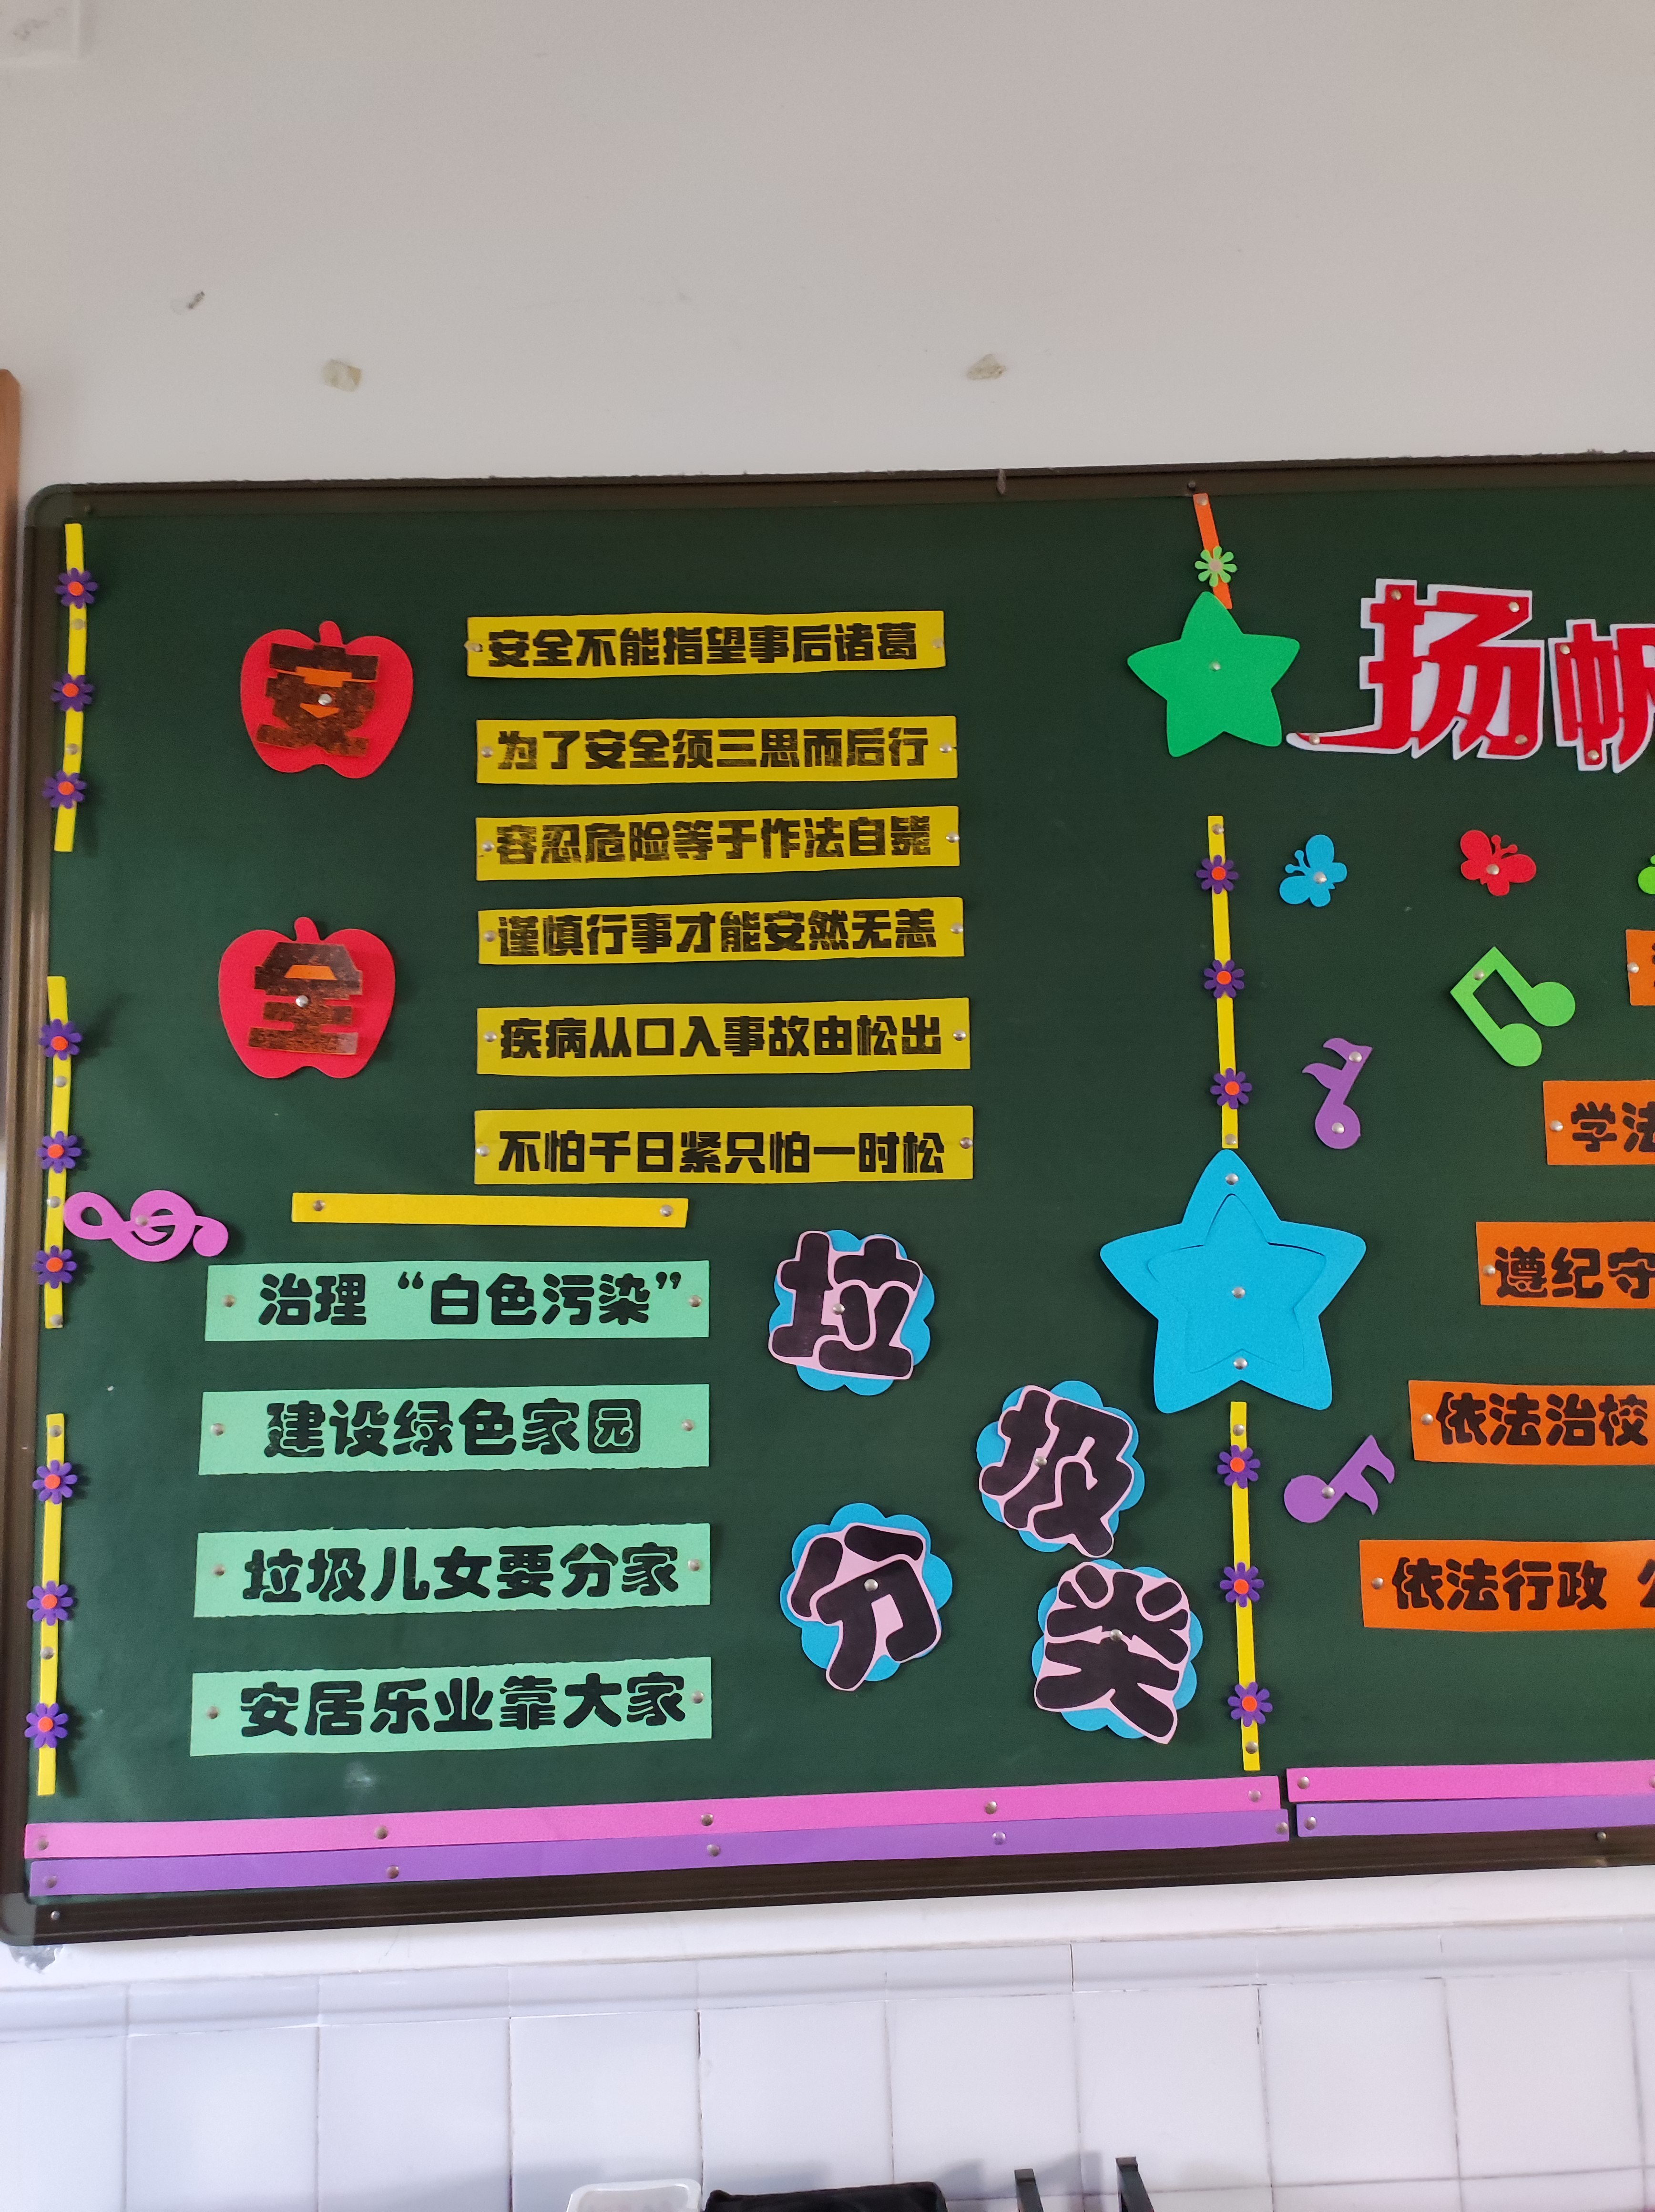 安全
安全不能指望事后诸葛
为了安全须三思而后行
容忍危险等于作法自毙
谨慎行事才能安然无恙
疾病从口入事故由松出
不怕千日紧只怕一时松
治理“白色污染”
建设绿色家园
垃圾儿女要分家
安居乐业靠大家
垃圾
分类
扬帆
学法
遵纪守
依法治校
依法行政